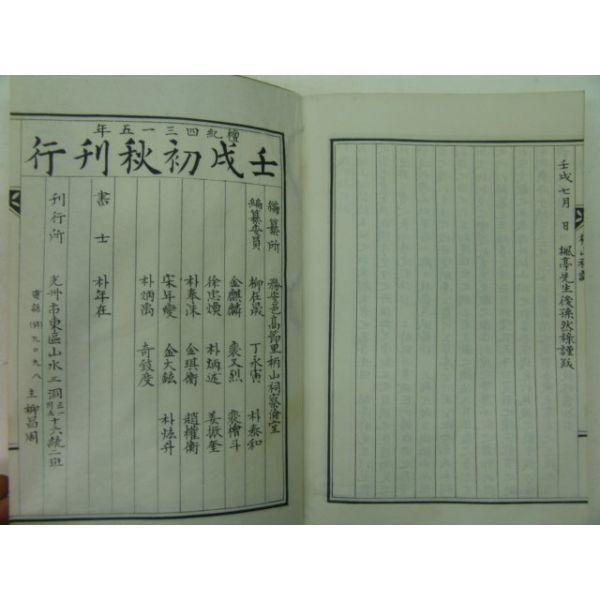 壬戌七月 日 楓亭先生後孫然禄謹跋
檀紀四三一五年
壬戌初秋刊行
編纂所 務安邑高節里柄山祠察儉室
編纂委員 柳在晟 丁永寅 朴泰和
金麒麟 裵又烈 裵僧斗
徐忠煥 朴炳延 姜振奎
朴奉洙 金琪衡 趙權衡
宋年燮 金大鉉 朴炫丹
朴炳禹 奇鼓度
書士 朴年在
刊行所 光州市東區山水二洞 十六統二班
主 柳昌周